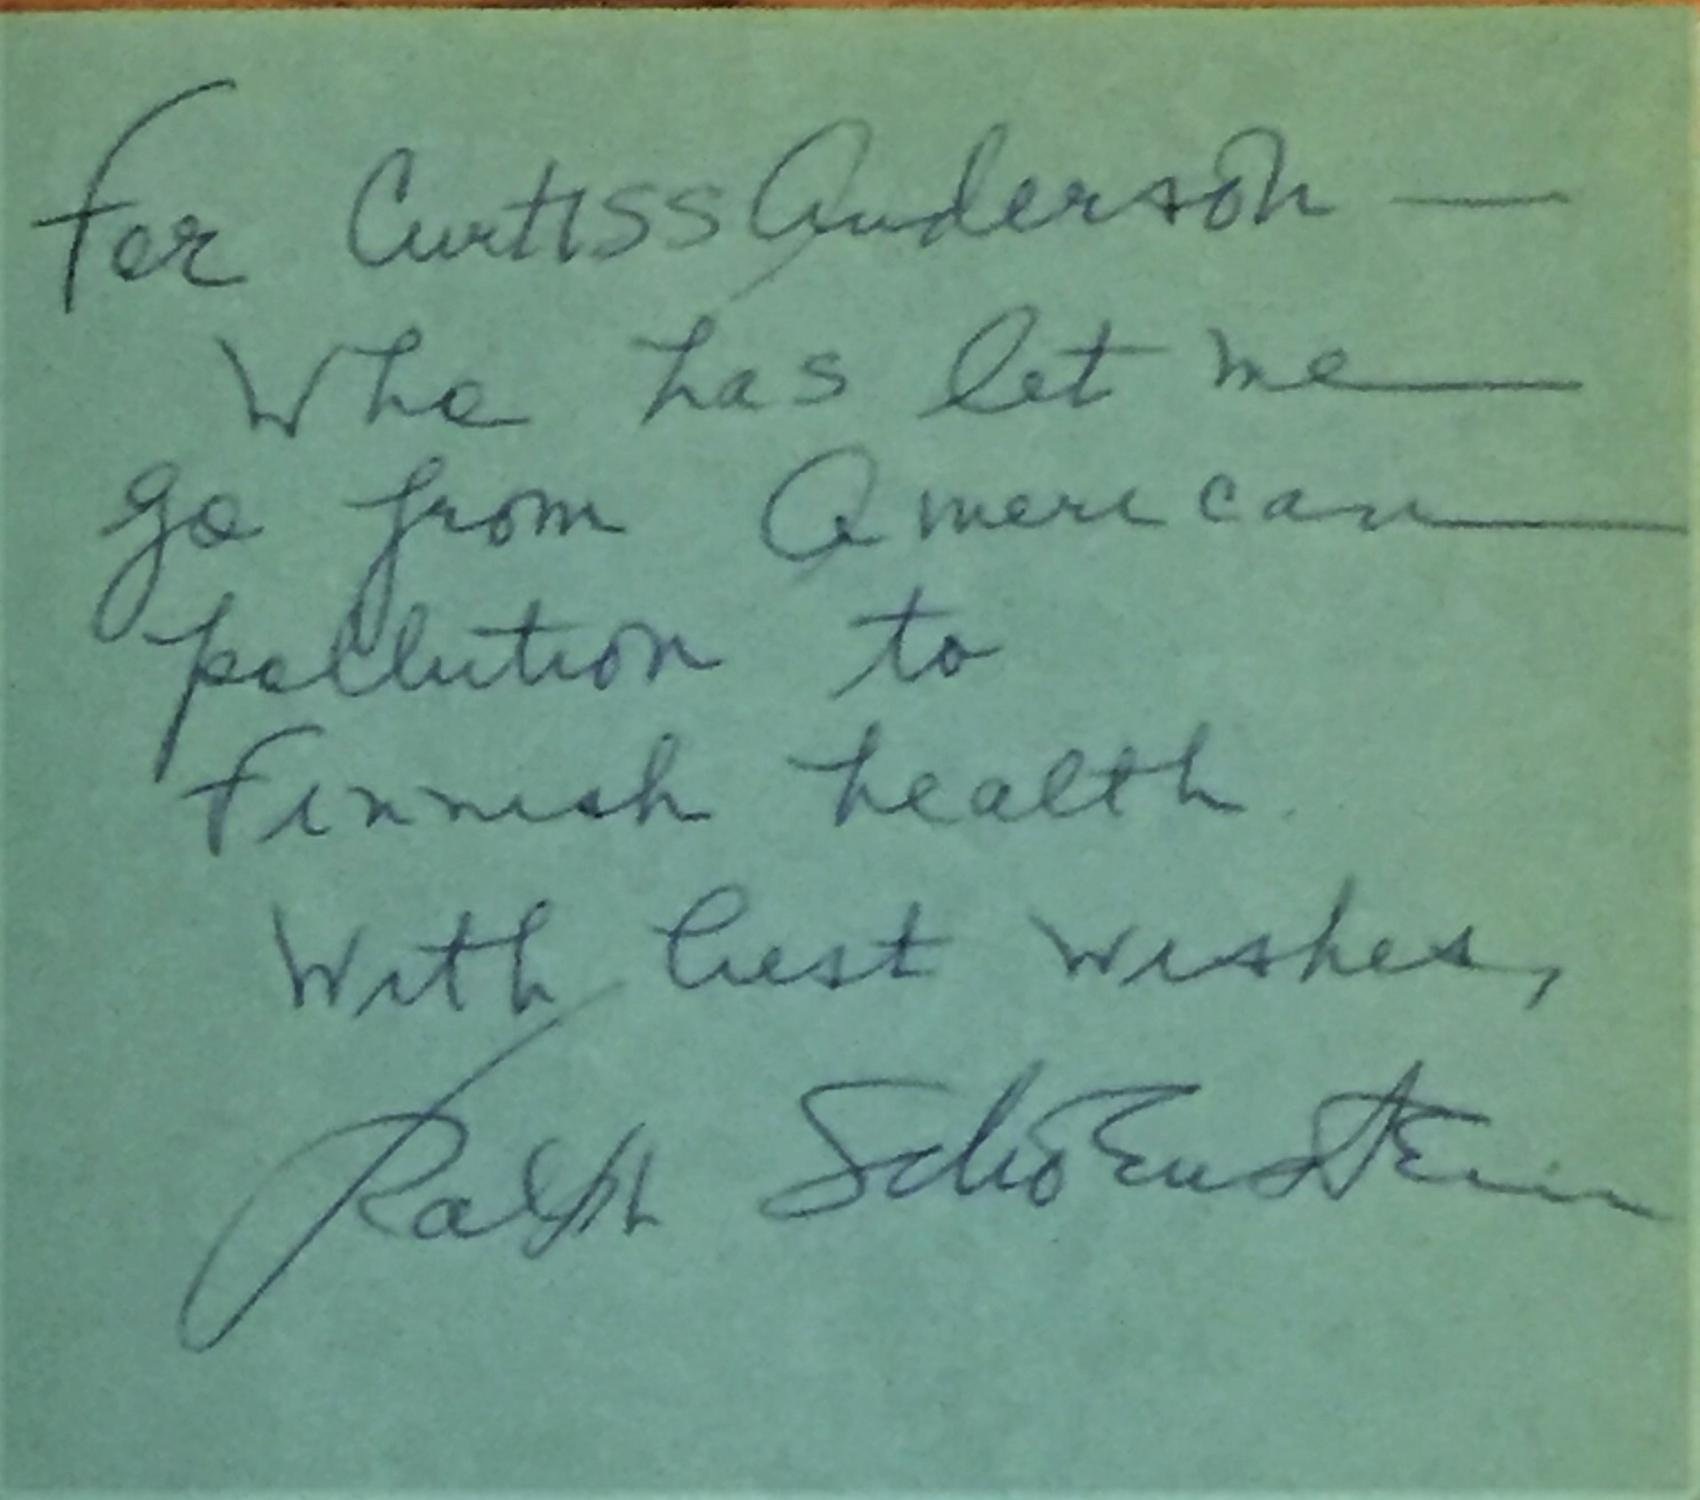 For Curtiss Anderson —
Who has let me
go from American
pollution to
Finnish health.
With best wishes,
Ralph Schoenstein